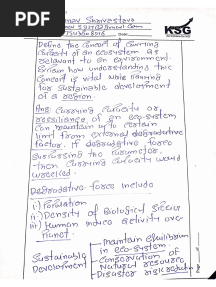 PDF
Shrivastava
KSG
Define the concept of carrying
capacity of an ecosystem as
relevant to an environment.
Explain how understanding this
concept is vital while planning
for sustainable development
of a region.
Ans: Carrying capacity or
resilience of an eco-system
can maintain up to certain
limit from external degradative
factor. If degradative force
surpassing the
then carrying capacity would
Degradative force include
i) Pollution
ii) Density of Biological Species
iii) Human activity over
Sustainable
Development
Maintain equilibrium
in eco-system
Conservation of
Natural resources
Disaster risk reduction